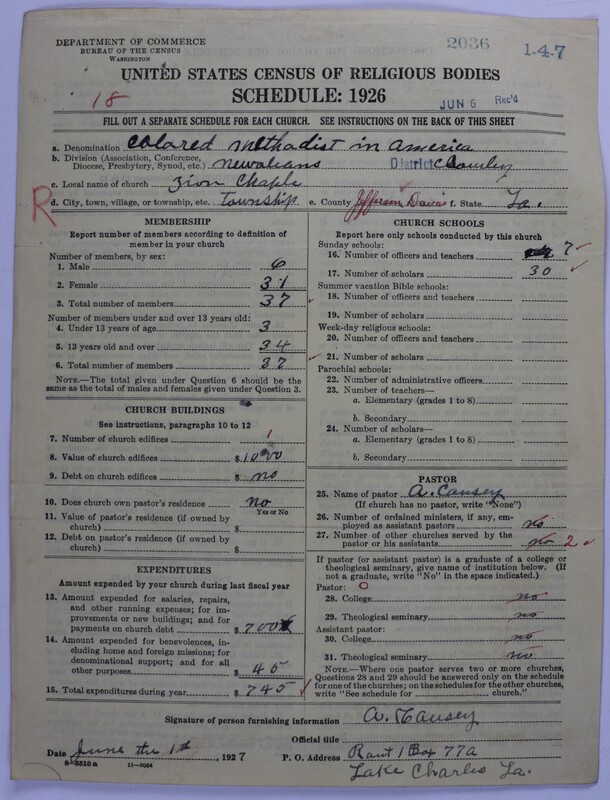 DEPARTMENT OF COMMERCE
BUREAU OF THE CENSUS
WASHINGTON
2036
1-4-7
UNITED STATES CENSUS OF RELIGIOUS BODIES
SCHEDULE: 1926
18
JUN 6 Rec'd
FILL OUT A SEPARATE SCHEDULE FOR EACH CHURCH. SEE INSTRUCTIONS ON THE BACK OF THIS SHEET
a. Denomination Colored Methodist in America
b. Division (Association, Conference,
Diocese, Presbytery, Synod, etc.) newalians District Crowley
c. Local name of church Zion Chaple
R d. City, town, village, or township, etc. Township e. County Jefferson Davis f. State La.
MEMBERSHIP
Report number of members according to definition of
member in your church
Number of members, by sex:
1. Male 6
2. Female 31
3. Total number of members 37
Number of members under and over 13 years old:
4. Under 13 years of age 3
5. 13 years old and over 34
6. Total number of members 37
NOTE.—The total given under Question 6 should be
the same as the total of males and females given under Question 3.
CHURCH BUILDINGS
See instructions, paragraphs 10 to 12
7. Number of church edifices 1
8. Value of church edifices $1000
9. Debt on church edifices $ no
10. Does church own pastor's residence no
Yes or No
11. Value of pastor's residence (if owned by
church) $
12. Debt on pastor's residence (if owned by
church) $
EXPENDITURES
Amount expended by your church during last fiscal year
13. Amount expended for salaries, repairs,
and other running expenses; for im-
provements or new buildings; and for
payments on church debt $ 700
14. Amount expended for benevolences, in-
cluding home and foreign missions; for
denominational support; and for all
other purposes $ 45
15. Total expenditures during year $ 745
CHURCH SCHOOLS
Report here only schools conducted by this church
Sunday schools:
16. Number of officers and teachers 7
17. Number of scholars 30
Summer vacation Bible schools:
18. Number of officers and teachers
19. Number of scholars
Week-day religious schools:
20. Number of officers and teachers
21. Number of scholars
Parochial schools:
22. Number of administrative officers
23. Number of teachers—
a. Elementary (grades 1 to 8)
b. Secondary
24. Number of scholars—
a. Elementary (grades 1 to 8)
b. Secondary
PASTOR
25. Name of pastor A. Causey
(If church has no pastor, write "None")
26. Number of ordained ministers, if any, em-
ployed as assistant pastors no
27. Number of other churches served by the
pastor or his assistants no 2
If pastor (or assistant pastor) is a graduate of a college or
theological seminary, give name of institution below. (If
not a graduate, write "No" in the space indicated.)
Pastor: O
28. College no
29. Theological seminary no
Assistant pastor:
30. College no
31. Theological seminary no
NOTE.—Where one pastor serves two or more churches,
Questions 28 and 29 should be answered only on the schedule
for one of the churches; on the schedules for the other churches,
write "See schedule for church."
Signature of person furnishing information A. Causey
Official title
Date June the 1th, 1927 P. O. Address Raut 1 Box 77A
8-5516a 11-9054 Lake Charles La.